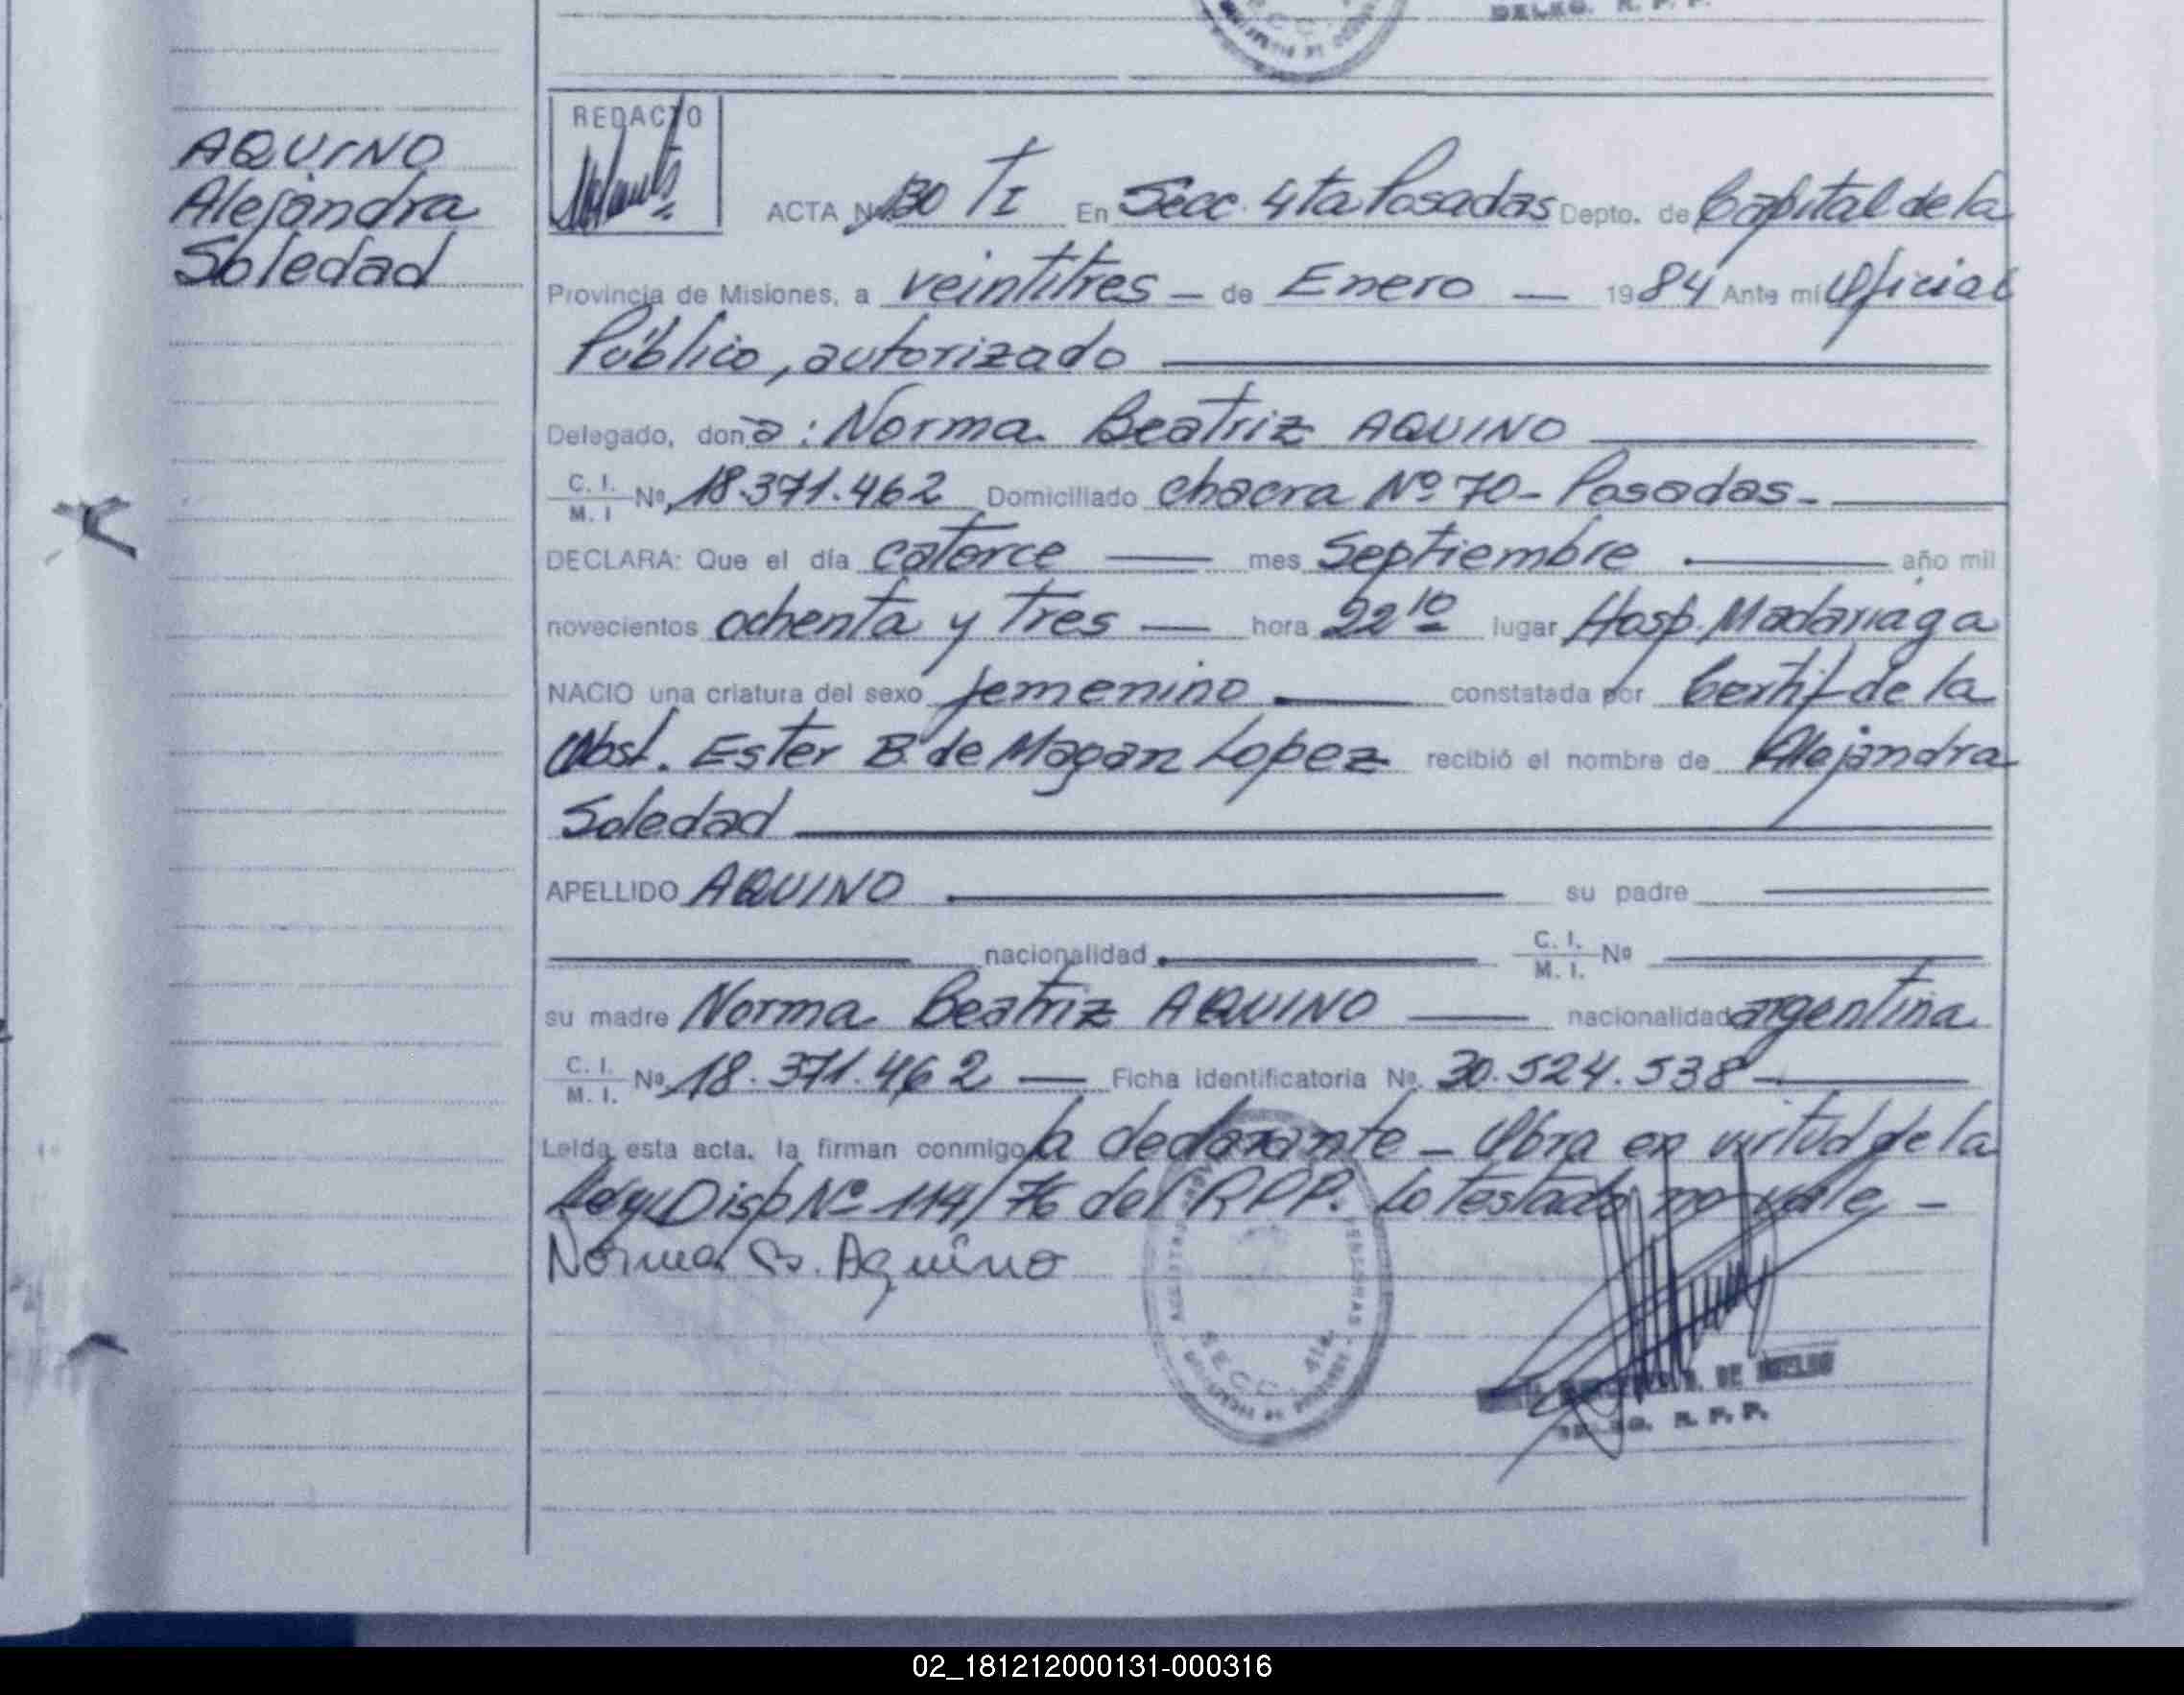 DELEG. R. P. P.
AQUINO
Alejandra
Soledad
REDACTO
ACTA Nº 130 TI En Secc. 4ta Posadas Depto. de Capital de la
Provincia de Misiones, a veintitres - de Enero — 1984 Ante mi Oficial
Público, autorizado
Delegado, don a: Norma Beatriz AQUINO
C. I. M. I Nº 18.371.462 Domiciliado chacra Nº 70- Posadas-
DECLARA: Que el día catorce — mes Septiembre — año mil
novecientos ochenta y tres — hora 22 10 lugar Hosp. Madariaga
NACIO una criatura del sexo femenino — constatada por Certif de la
Obst. Ester B. de Magan Lopez recibió el nombre de Alejandra
Soledad
APELLIDO AQUINO su padre
nacionalidad C. I. M. I. Nº
su madre Norma Beatriz AQUINO — nacionalidad argentina
C. I. M. I. Nº 18.371.462 — Ficha identificatoria Nº 30.524.538
Leida esta acta, la firman conmigo la declarante - Obra en virtud de la
Disp Nº 114/76 del RPP. Lo testado no vale -
Norma B. Aquino
SECC. 4ta.
DELEG. R. P. P.
02_181212000131-000316